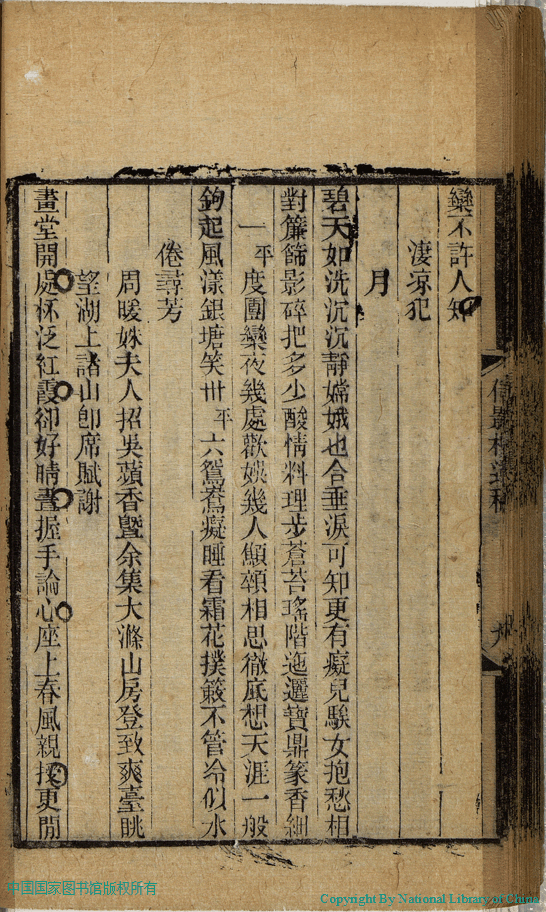 欒不許人知
淒凉犯
月
碧天如洗沉沉靜嫦娥也合垂淚可知更有癡兒騃女抱愁相
對簾篩影碎把多少酸情料理步蒼苔瑤階迤邐寶鼎篆香細
一平度團欒夜幾處歡娛幾人顦顇相思徹底想天涯一般
鉤起風漾銀塘笑卅平六鴛鴦癡睡看霜花撲簌不管冷似水
倦尋芳
周暖姝夫人招吳蘋香曁余集大滌山房登致爽臺眺
望湖上諸山卽席賦謝
畫堂開處杯泛紅霞卻好晴晝握手論心座上春風親挹更閒
九
中国国家图书馆版权所有
Copyright By National Library of China